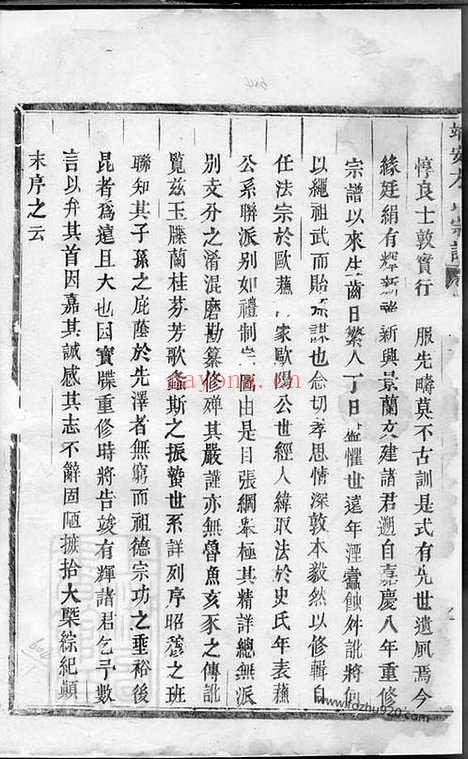 惇良士敦實行 服先疇莫不古訓是式有先世遺風焉今
緣廷絹有輝新 新興景蘭文建諸君遡自嘉慶八年重修
宗譜以來生齒日繁人丁日 懼世遠年湮蠹蝕舛訛將何
以繩祖武而貽 謀也念切孝思情深敦本毅然以修輯自
任法宗於歐蘇 家歐陽公世經人緯取法於史氏年表蘇
公系聯派别如禮制 圖由是目張綱舉極其精詳總無派
别支分之淆混磨勘纂修殫其嚴謹亦無魯魚亥豕之傳訛
覽兹玉牒蘭桂芬芳歌螽斯之振蟄世系詳列序昭穆之班
聯知其子孫之庇蔭於先澤者無窮而祖德宗功之垂裕後
昆者爲遠且大也因寶牒重修時將告竣有輝諸君乞予數
言以弁其首因嘉其誠感其志不辭固陋摭拾大槩綜紀顛
末序之云
nayong.cn
www.fozhu920.com